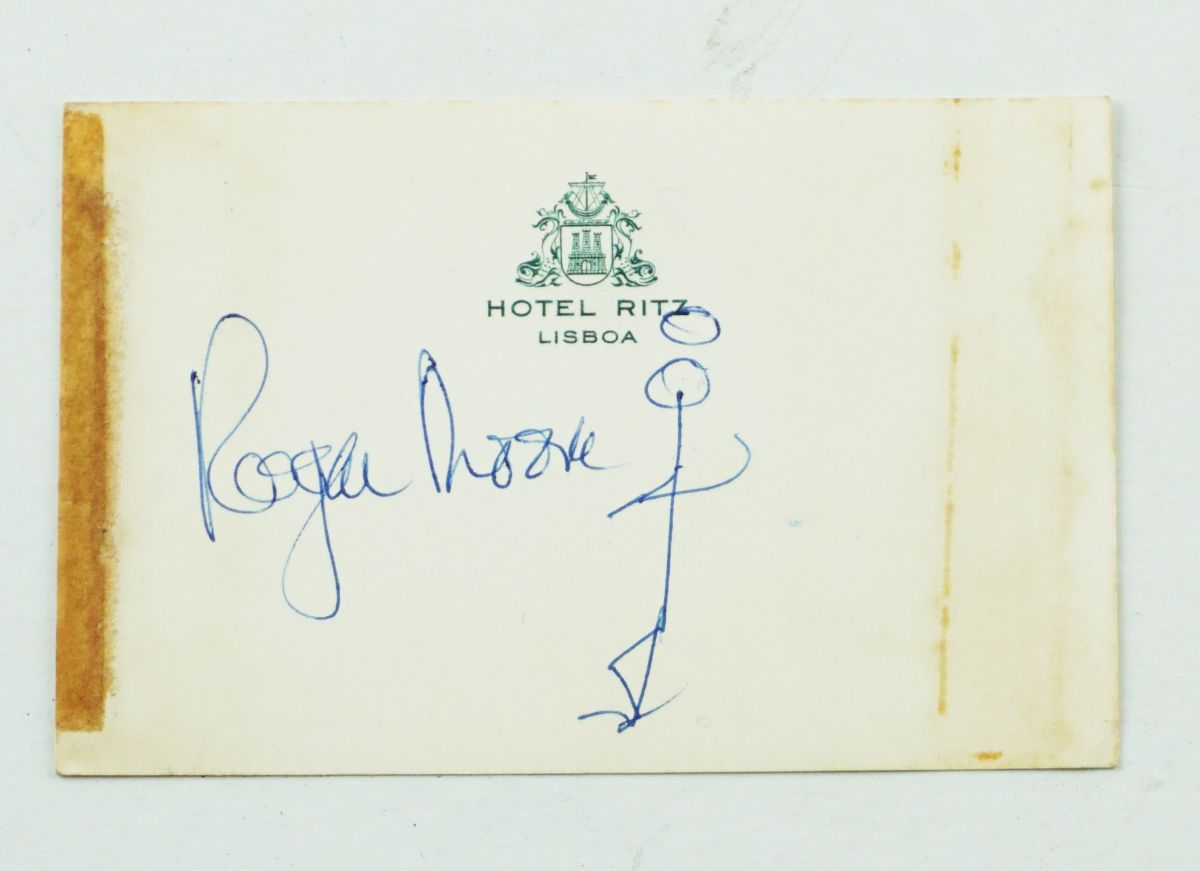 HOTEL RITZ
LISBOA
Roger Moore